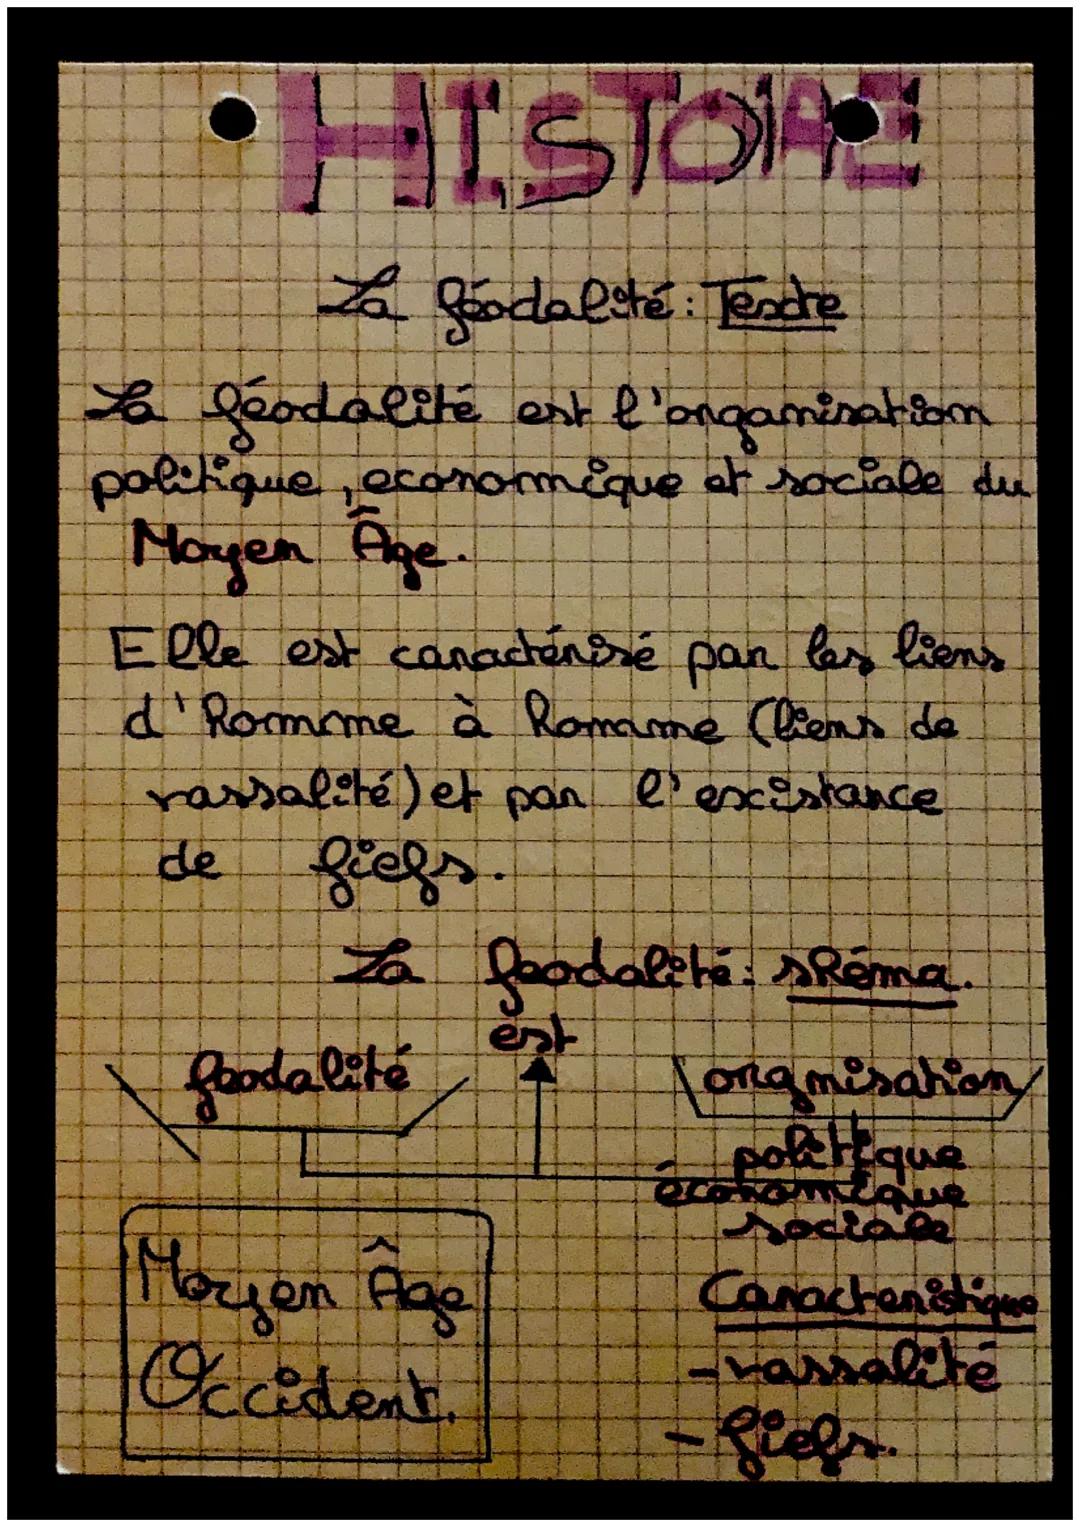 HISTOIRE
La féodalité : Texte
La féodalité est l'organisation
politique, economique et sociale du
Moyen Âge.
Elle est caractérisé par les liens
d'homme à homme (liens de
vassalité) et par l'existance
de fiefs.
La feodalité : shéma.
est
feodalité
orgnisation
politique
économique
sociale
Moyen Âge
Occident.
Caracteristique
- vassalité
- fiefs.